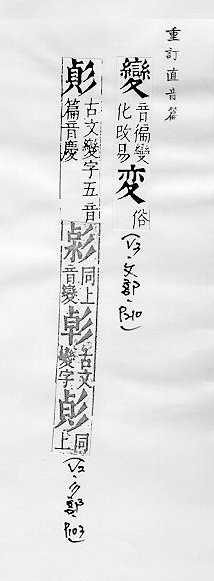 重訂直音篇
變 音徧變化改易 変 俗 (V3·文部·P210)
古文變字五音篇音慶 同上音變 古文變字 同上 (V2·彡部·P103)